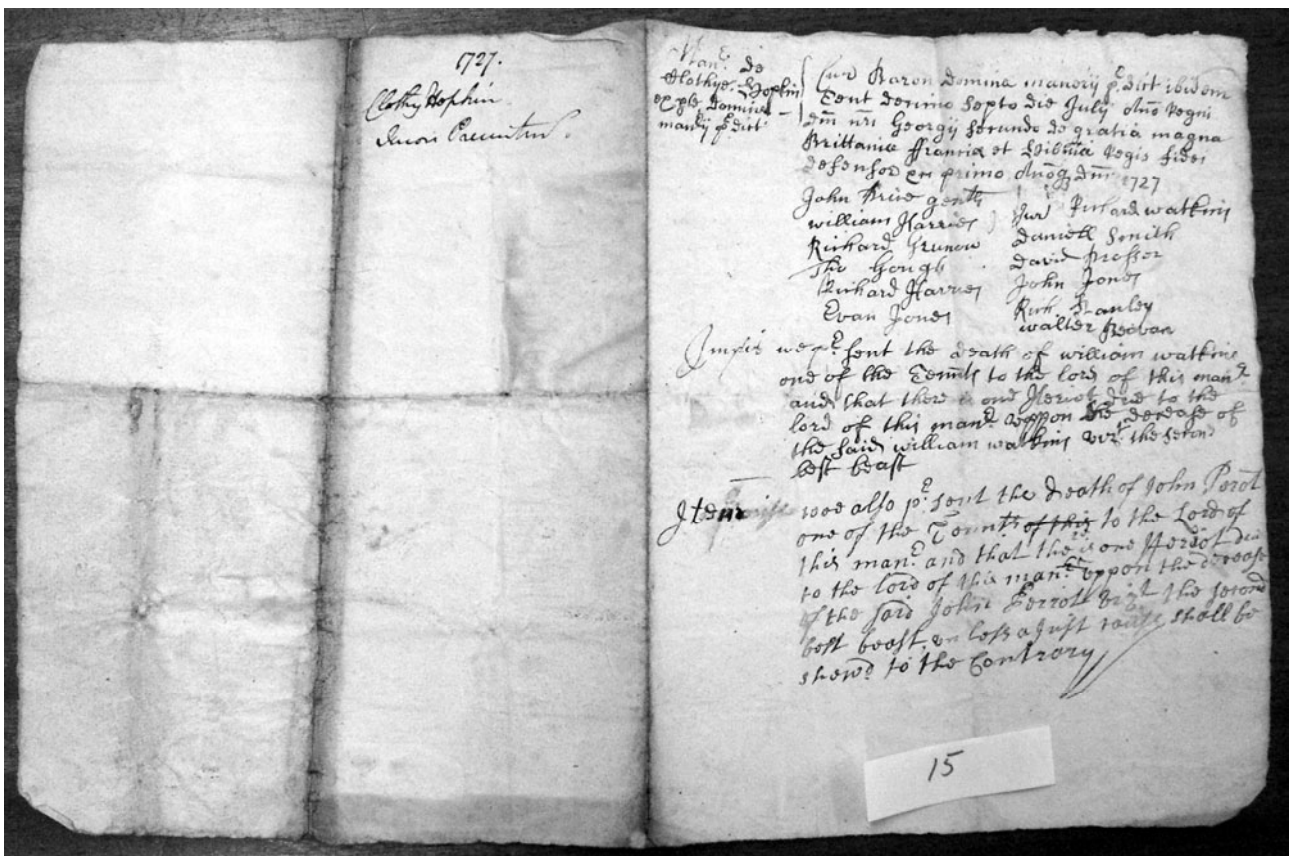 1727.
Clothy Hopkin
Man.r de
Clothye Hopkin
ex pte Domine
man.ij p.dict
Cur Baron domina manerij p.dict ibidem
Tent decimo septo die July Ano Regni
dm nri Georgij secundo de gratia magna
Brittaniæ ffranciæ et Hibnia Regis fidei
defensor primo Anoq dm 1727
John Brise gent
william Harries
Richard Grunow
Tho Gough
Richard Harries
Evan Jones
Jur Richard watkins
Daniell Smith
David Prosser
John Jones
Rich Stanley
walter Beevan
Impis we p.sent the death of william watkins
one of the Tennts to the lord of this man.r
and that there is one Heriot due to the
lord of this man.r uppon the decease of
the said william watkins viz.t the second
best beast
Item wee also p.sent the Death of John Perot
one of the Tennts of this to the Lord of
this man.r and that there is one Heriot due
to the lord of this man.r uppon the decease
of the said John Perrot viz.t the second
best beast, unless a Just cause shall be
shewd to the Contrary
15